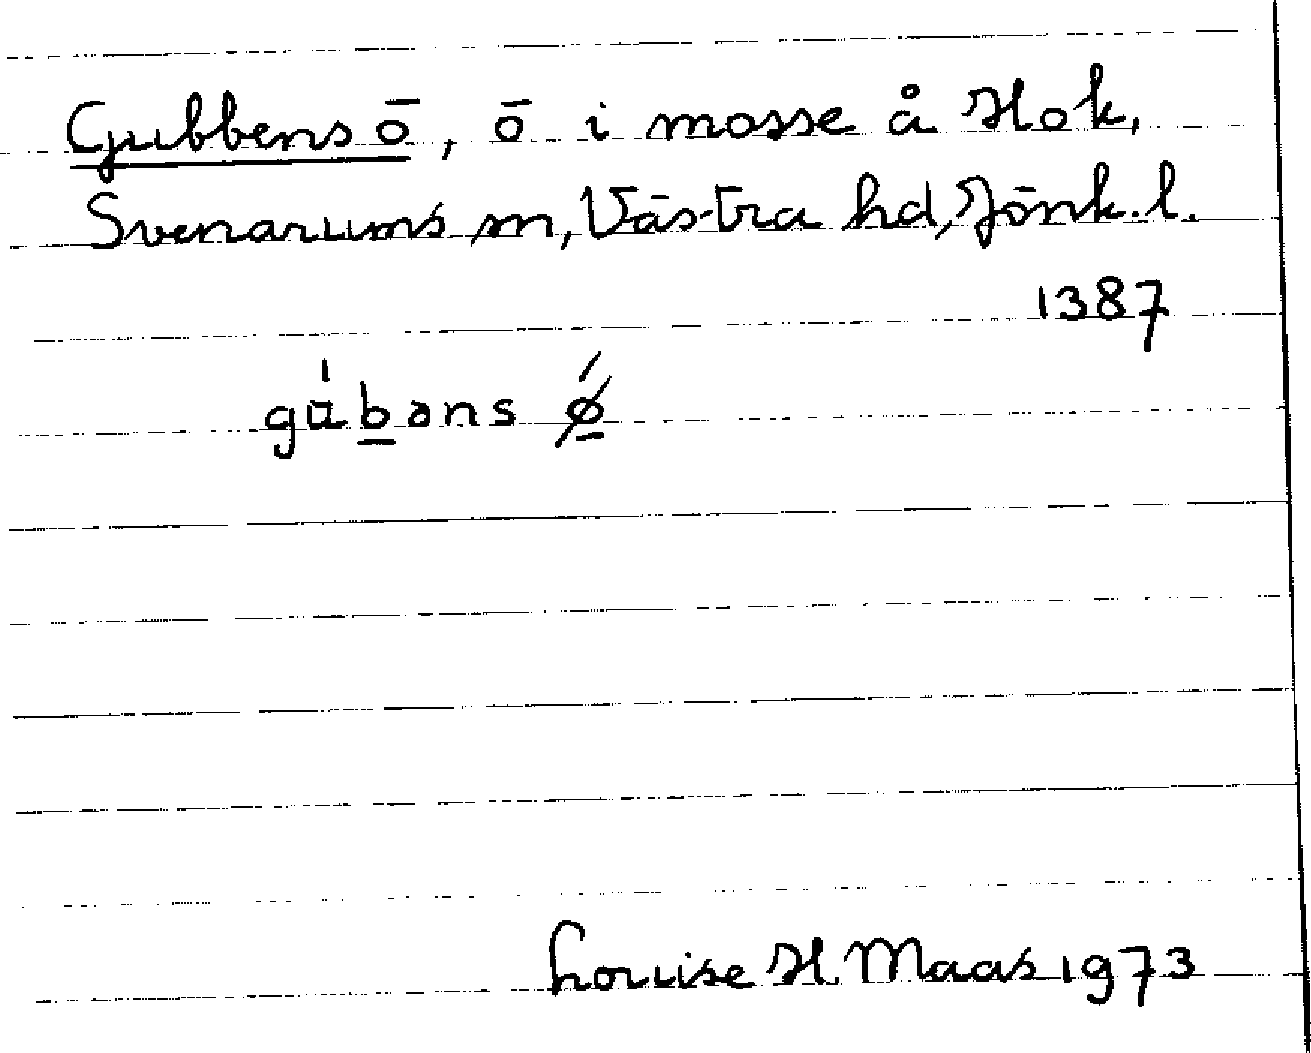 Gubbens ö, ö i mosse å Hok,
Svenarums sn, Västra hd, Jönk. l.
1387
gu̍b̲əns ǿ̲
Louise H. Maas 1973